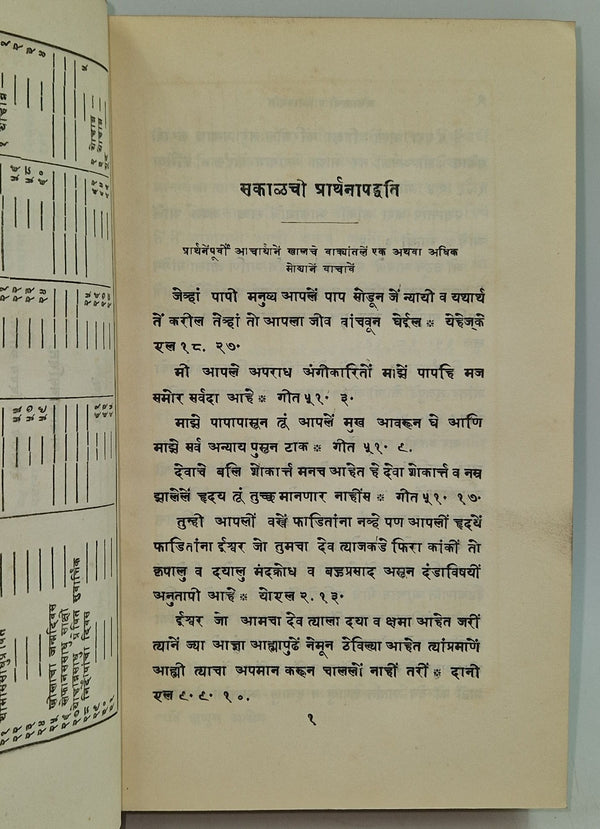 सकाळची प्रार्थनापद्धति
प्रार्थनेंपूर्वीं आचार्यानें खालचे वाक्यांतलें एक अथवा अधिक
मोठ्यानें वाचावें
जेव्हां पापी मनुष्य आपलें पाप सोडून जें न्यायी व यथार्थ
तें करील तेव्हां तो आपला जीव वांचवून घेईल * येहेज्के
एल १८. २७.
मी आपले अपराध अंगीकारितों माझें पापहि मज
समोर सर्वदा आहे * गीत ५१. ३.
माझे पापापासून तूं आपलें मुख आवरून घे आणि
माझे सर्व अन्याय पुसून टाक * गीत ५१. ९.
देवाचे बलि शोकार्त्त मनच आहेत हे देवा शोकार्त्त व नम्र
झालेलें हृदय तूं तुच्छ मानणार नाहींस * गीत ५१. १७.
तुम्ही आपलीं वस्त्रें फाडितांना नव्हे पण आपलीं हृदयें
फाडितांना ईश्वर जो तुमचा देव त्याजकडे फिरा कांकीं तो
कृपालु व दयालु मंदक्रोध व बहुप्रसाद असून दंडाविषयीं
अनुतापी आहे * योएल २. १३.
ईश्वर जो आमचा देव त्याला दया व क्षमा आहेत जरीं
त्यानें ज्या आज्ञा आह्मापुढें नेमून ठेविल्या आहेत त्यांप्रमाणें
आह्मी त्याचा अपमान करून चाललों नाहीं तरीं * दानी
एल ९. ९. १०.
१